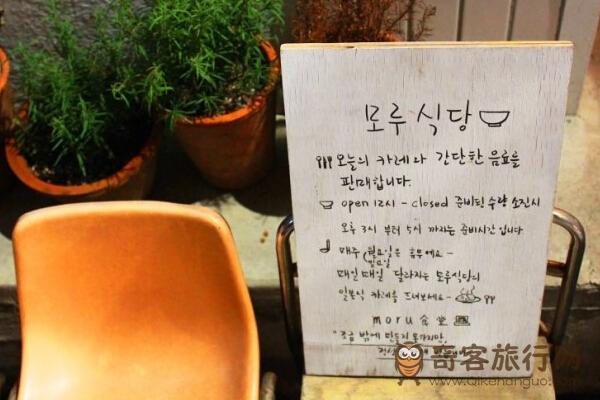 모루식당
오늘의 카레와 간단한 음료를
판매합니다.
open 12시 - closed 준비된 수량 소진시
오후 3시 부터 5시 까지는 준비시간 입니다
매주 (월요일은 휴무예요~
일요일
매일매일 달라지는 모루식당의
일본식 카레를 드셔보세요~
moru 食堂
"조금 밖에 만들지 못하지만,
奇客旅行网
www.Qikenanguo.com